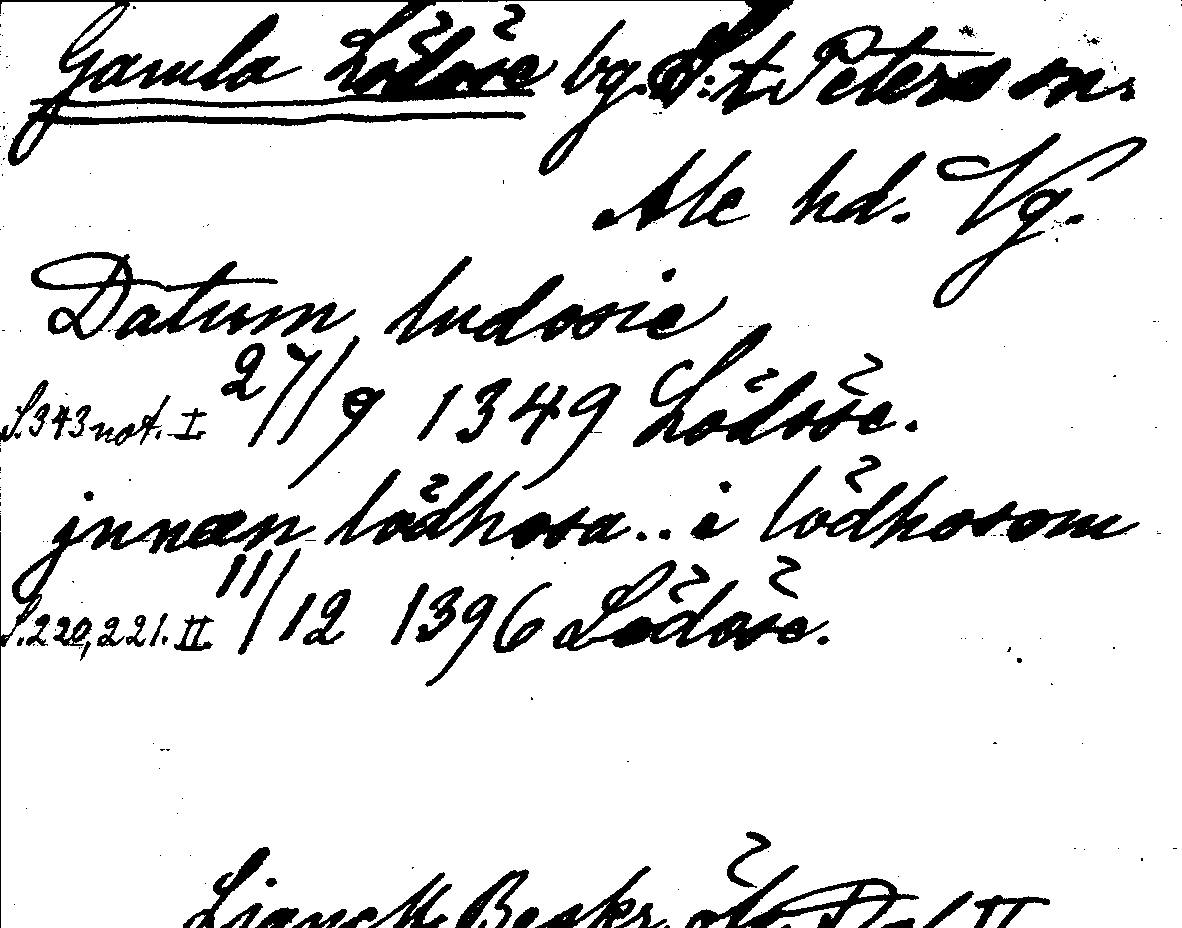 Gamla Lödöse bg. S:t Peters sn.
Ale hd. Vg.
Datum ludosie
S.343 not. I 27/9 1349 Lödöse.
jnnæn lødhosa.. i lødhosom
S.220, 221. II 11/12 1396 Lödöse.